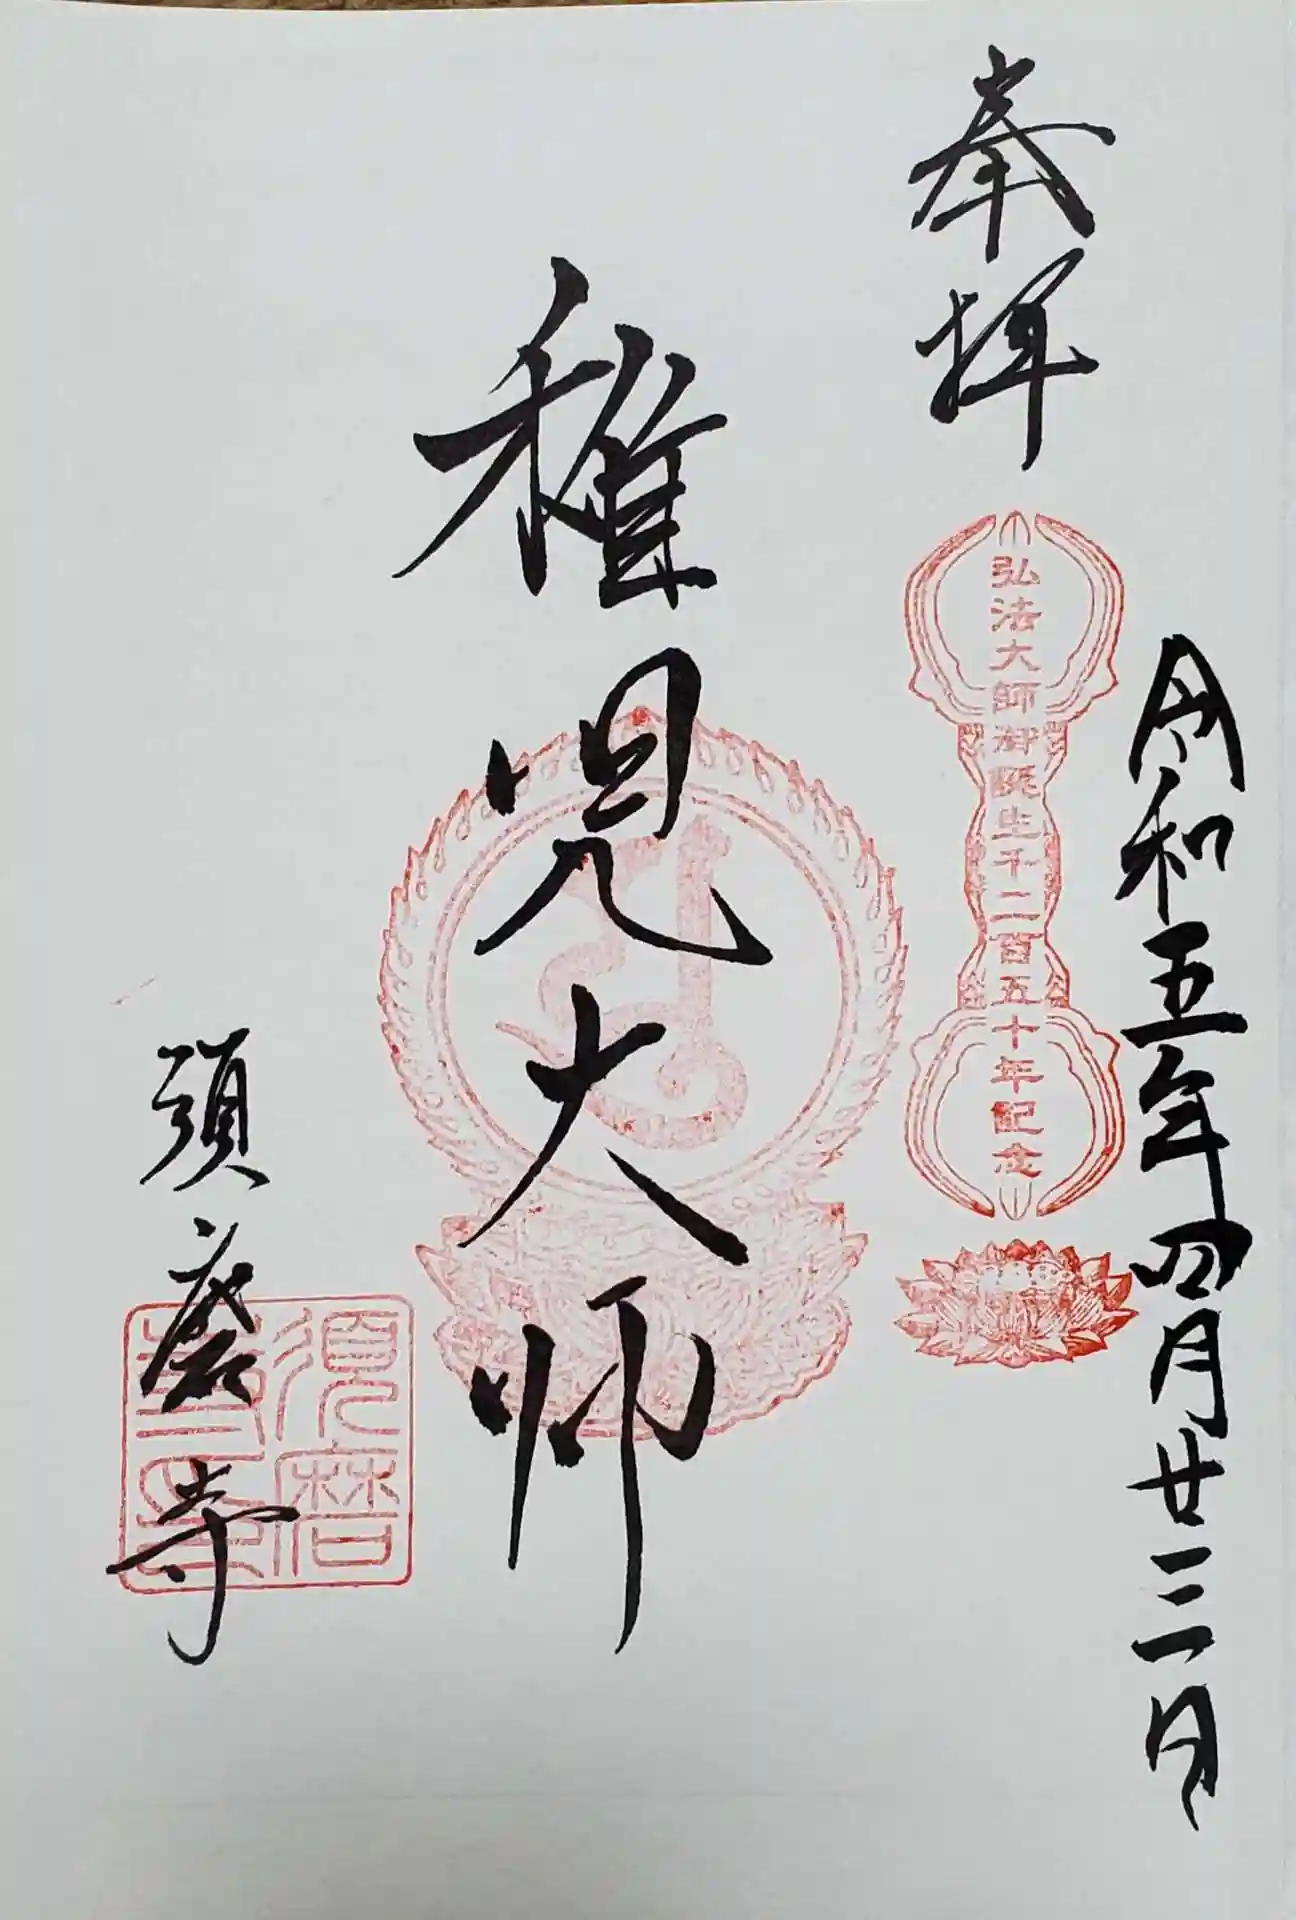 奉拝
令和五年四月廿三日
弘法大師御誕生千二百五十年記念
稚児大師
須磨寺
須磨
寺印